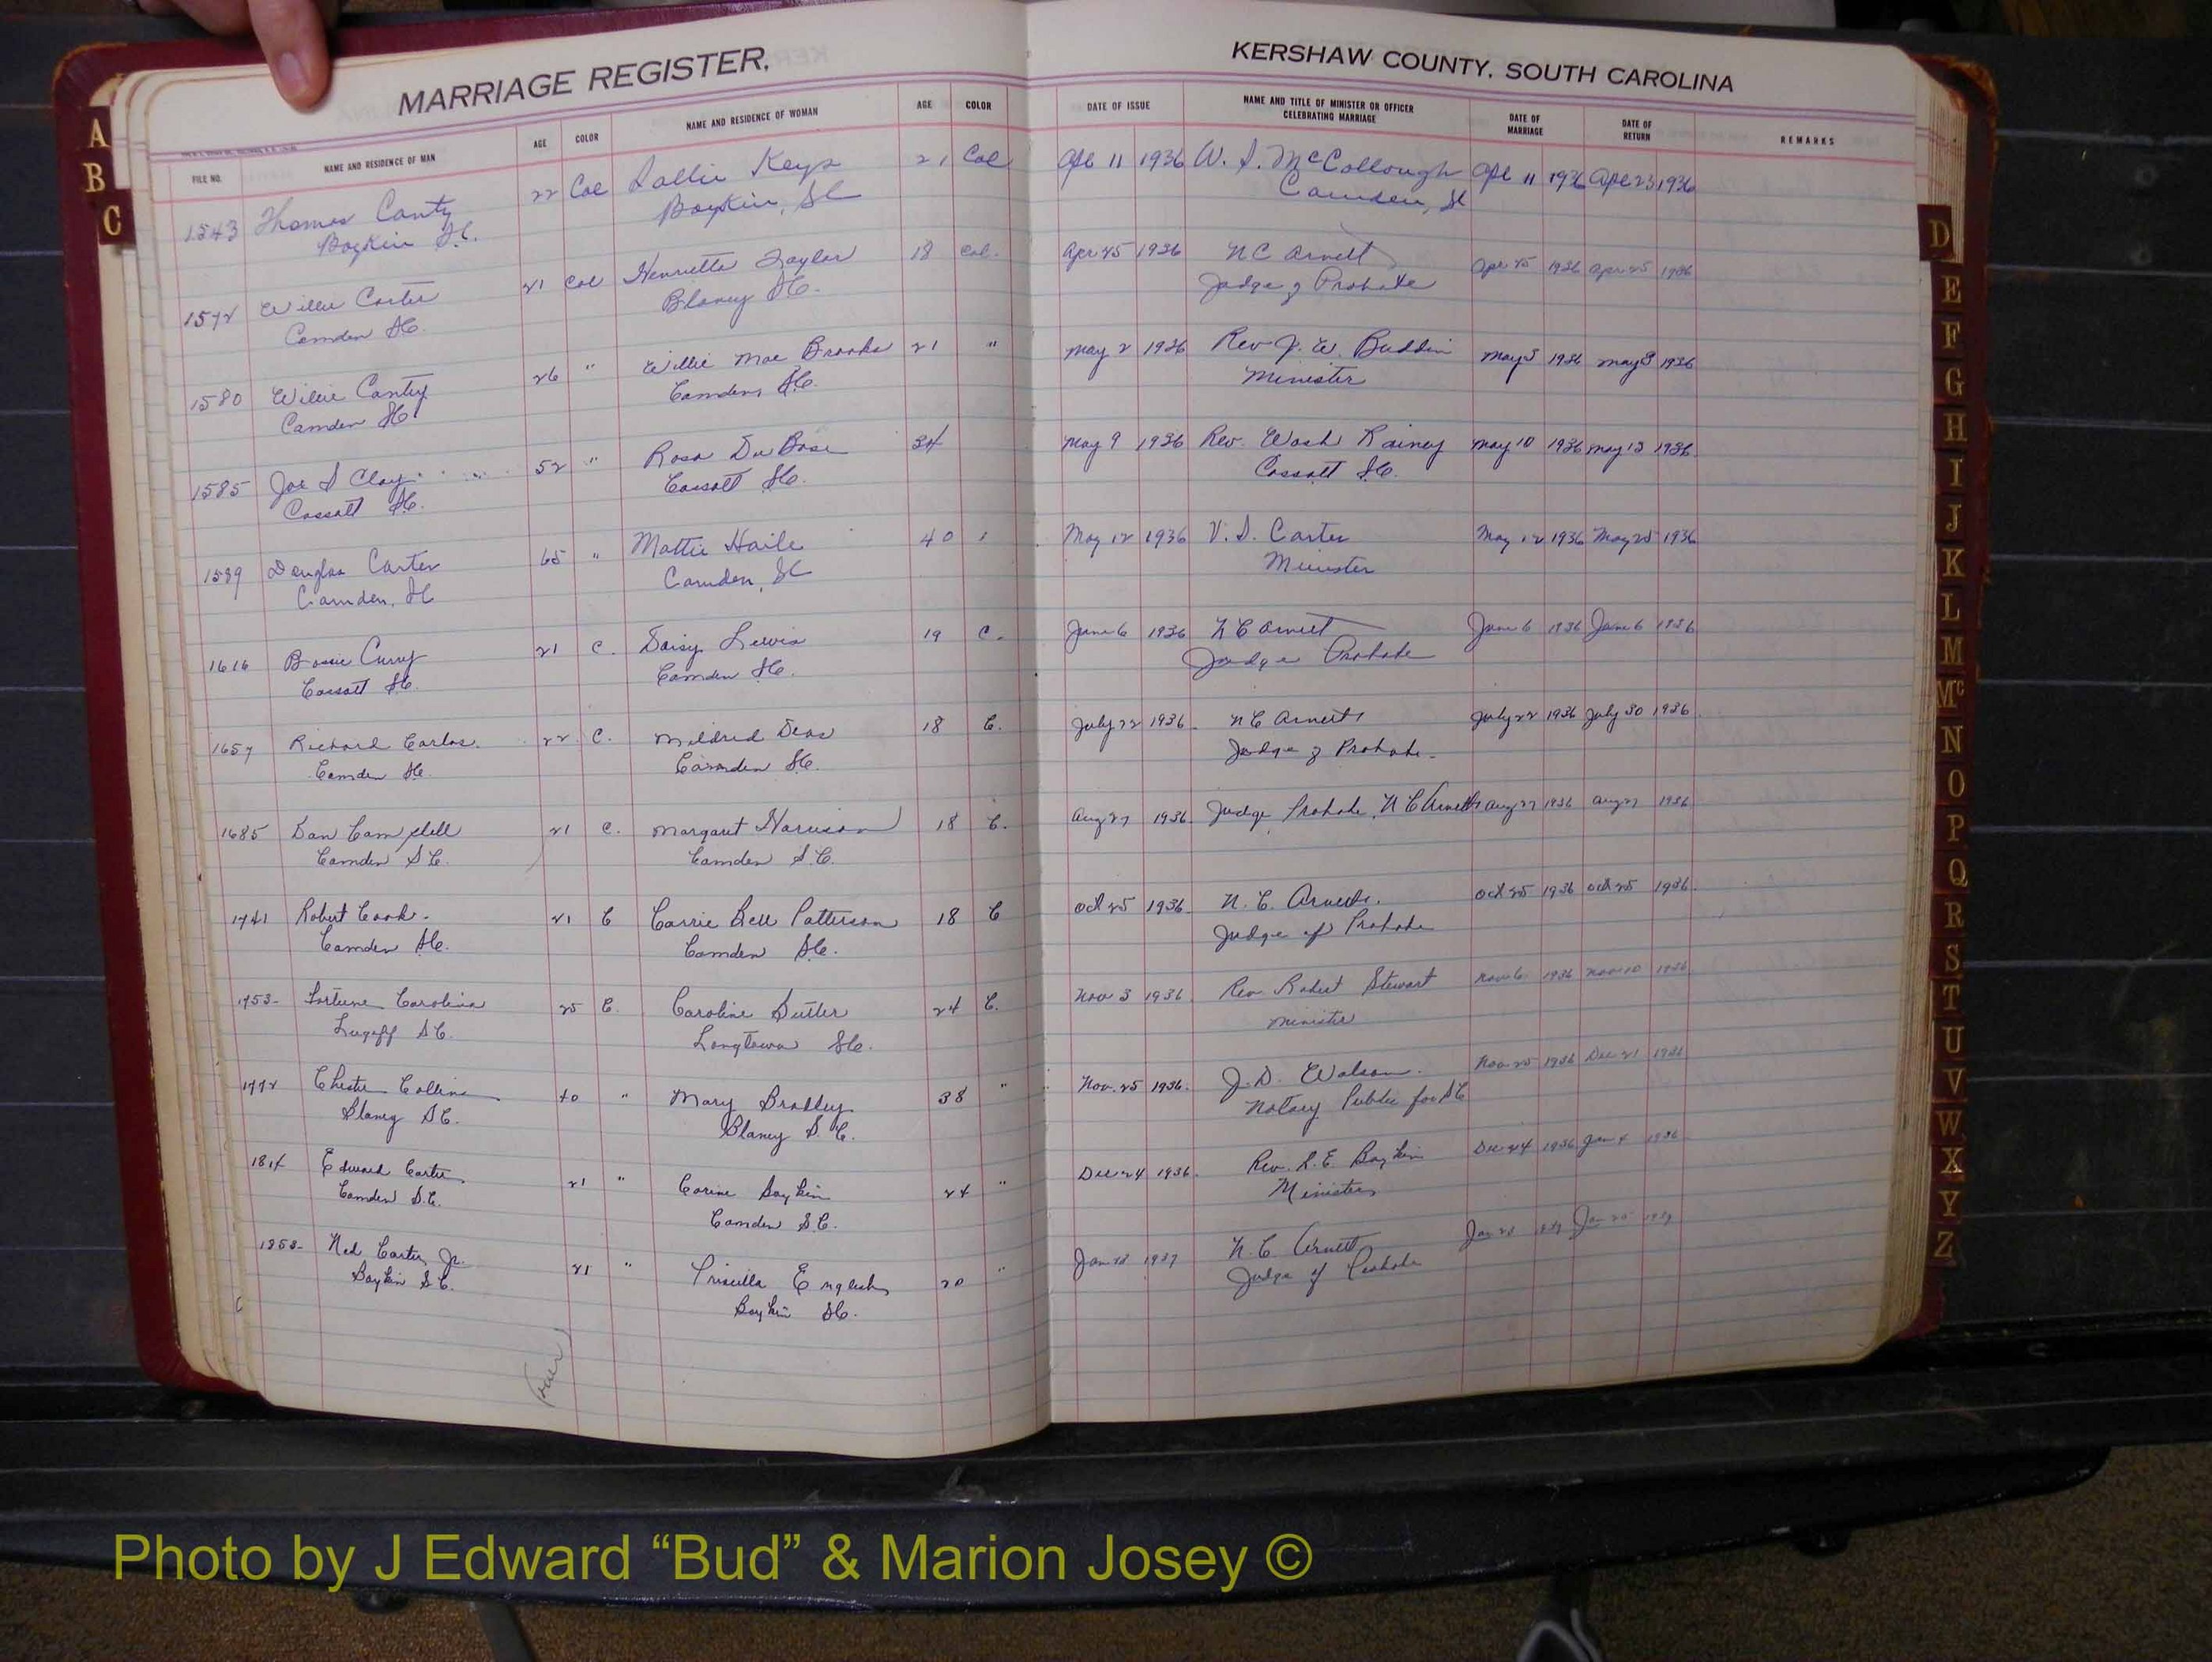 MARRIAGE REGISTER,
KERSHAW COUNTY, SOUTH CAROLINA
FILE NO. NAME AND RESIDENCE OF MAN AGE COLOR NAME AND RESIDENCE OF WOMAN AGE COLOR DATE OF ISSUE NAME AND TITLE OF MINISTER OR OFFICER CELEBRATING MARRIAGE DATE OF MARRIAGE DATE OF RETURN REMARKS
1543 Thomas Canty 22 Col Sallie Keys 21 Col Apl 11 1936 W. S. McCollough Apl 11 1936 Apl 23 1936
Boykin S.C. Boykin, SC Camden, SC
1572 Willie Carter 21 Col Henrietta Taylor 18 Col. Apr 25 1936 N C Arnett Apr 25 1936 Apr 25 1936
Camden SC. Blaney SC. Judge of Probate
1580 Willie Canty 26 " Willie Mae Brooks 21 " May 2 1936 Rev J. W. Buddin May 3 1936 May 8 1936
Camden SC Camden, SC. Minister
1585 Joe S Clay 52 " Rosa DuBose 34 May 9 1936 Rev. Wash Rainey May 10 1936 May 13 1936
Cassatt SC. Cassatt SC. Cassatt SC.
1589 Douglas Carter 65 " Mattie Haile 40 May 12 1936 V. S. Carter May 12 1936 May 25 1936
Camden, SC Camden, SC Minister
1616 Curry 21 C. Daisy Lewis 19 C. June 6 1936 N C Arnett June 6 1936 June 6 1936
Cassatt SC. Camden SC. Judge Probate
1657 Richard Carlos. 22 C. Mildred Deas 18 C. July 22 1936 N C Arnett July 22 1936 July 30 1936
Camden SC. Camden SC. Judge of Probate.
1685 Dan Campbell 21 C. Margaret Harrison 18 C. Aug 27 1936 Judge Probate, N C Arnett Aug 27 1936 Aug 27 1936
Camden S.C. Camden S.C.
1741 Robert Cook. 21 C Carrie Bell Patterson 18 C Oct 25 1936 N. C. Arnett. Oct 25 1936 Oct 25 1936
Camden SC. Camden SC. Judge of Probate
1753 Fortune Carolina 25 C. Caroline Butler 24 C. Nov 3 1936 Rev Robert Stewart Nov 6 1936 Nov 10 1936
Lugoff S.C. Longtown SC. Minister
1772 Chester Collins 40 " Mary Bradley 38 " Nov. 25 1936. J. D. Watson. Nov 25 1936 Dec 21 1936
Blaney S.C. Blaney S.C. Notary Public for SC
1814 Edward Carter 21 " Corine Boykin 24 " Dec 24 1936. Rev. L. E. Boykin Dec 24 1936 Jan 4 1936
Camden S.C. Camden S.C. Minister
1853 Ned Carter, Jr. 21 " Priscilla English 20 " Jan 23 1937 N. C. Arnett Jan 23 1937 Jan 25 1937
Boykin S.C. Boykin SC. Judge of Probate
Over
A
B
C
D
E
F
G
H
I
J
K
L
M
Mc
N
O
P
Q
R
S
T
U
V
W
X
Y
Z
Photo by J Edward “Bud” & Marion Josey ©